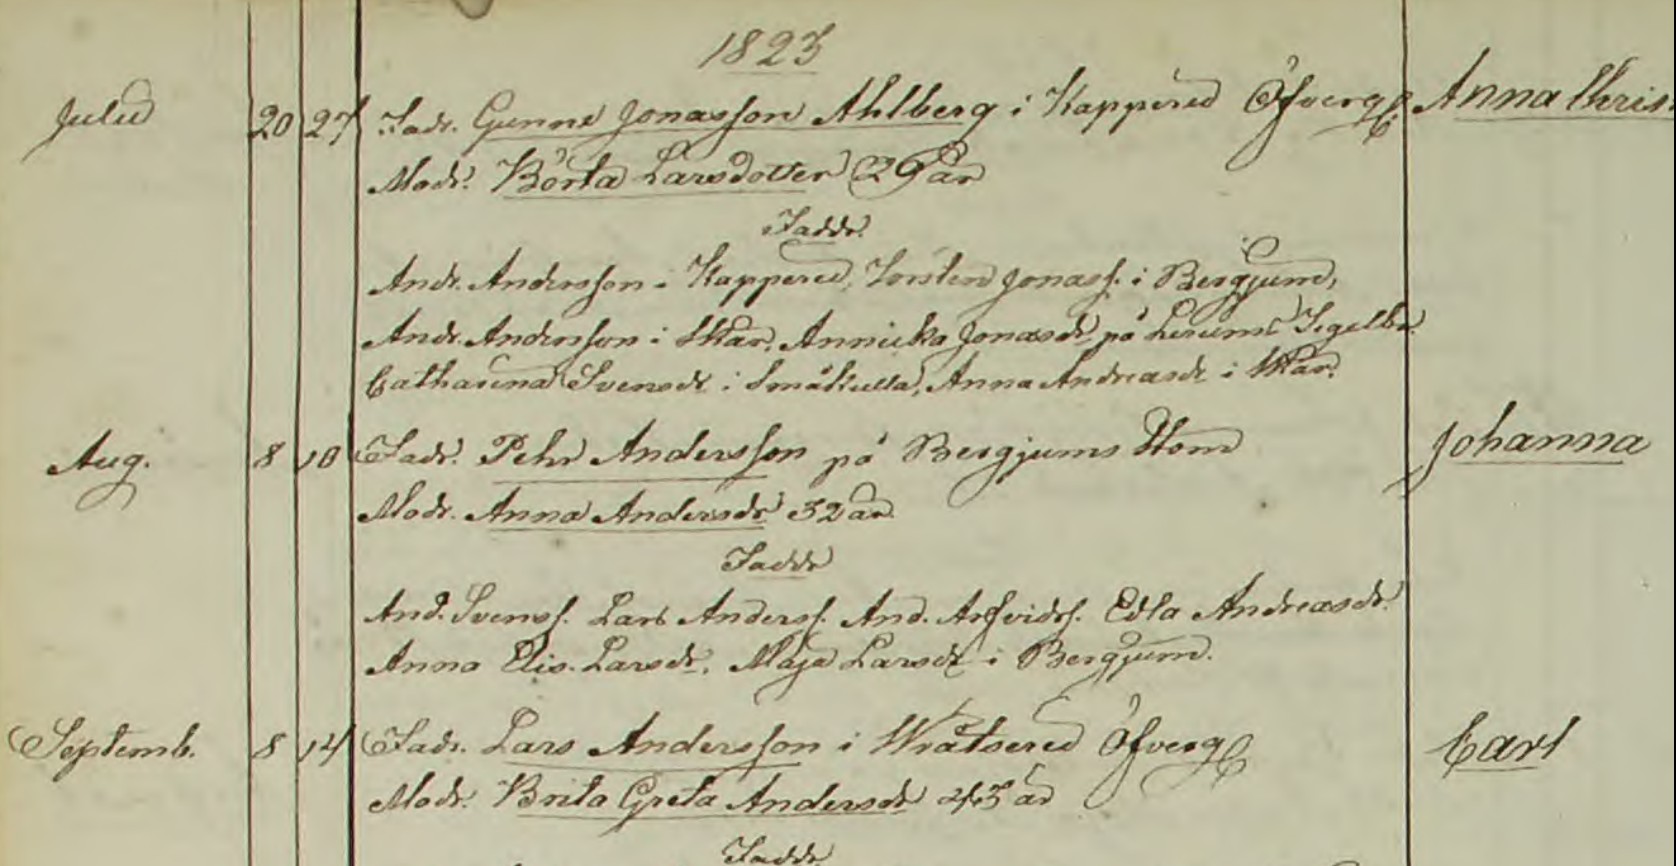 1823
Julii 20 27 Fadr. Gunne Jonasson Ahlberg i Kappered Öfverg. Anna Chris.
Modr. Börta Larsdotter 29 år
Faddr.
Andr. Andersson i Kappered, Torsten Jonass. i Bergjum,
Andr. Andersson i Skår, Annicka Jonasdr på Lerums Tegelbr.
Catharina Svensdr i Småkulla, Anna Andreasdr i Skår.
Aug. 8 10 Fadr. Pehr Andersson på Bergjums Stom Johanna
Modr. Anna Andersdr 32 år.
Faddr
And. Svenss. Lars Anderss. And. Arfvidss. Edla Andreasdr.
Anna Elis. Larsdr, Maja Larsdr i Bergjum.
Septemb. 8 14 Fadr. Lars Andersson i Wråtsered Öfverg Carl
Modr. Brita Greta Andersdr 43 år
Faddr.